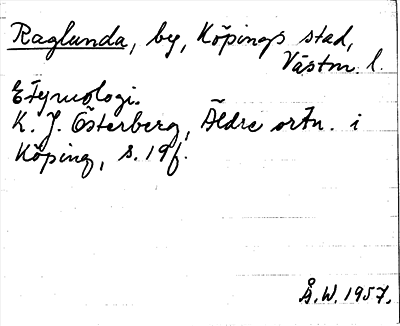 Raglunda, by, Köpings stad,
Västm. l.
Etymologi.
K. J. Österberg, Äldre ortn. i
Köping, s. 19f.
Å.W. 1957.